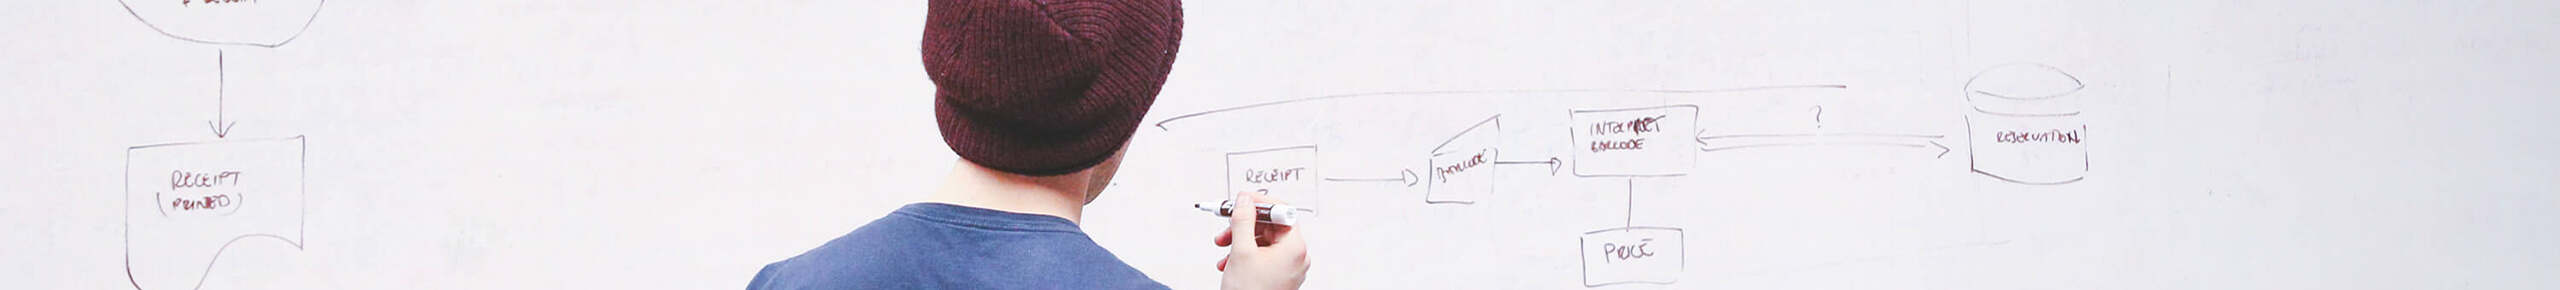 RECEIPT
(PRINTED)
RECEIPT
?
BARCODE
INTERPRET
BARCODE
PRICE
?
RESERVATION